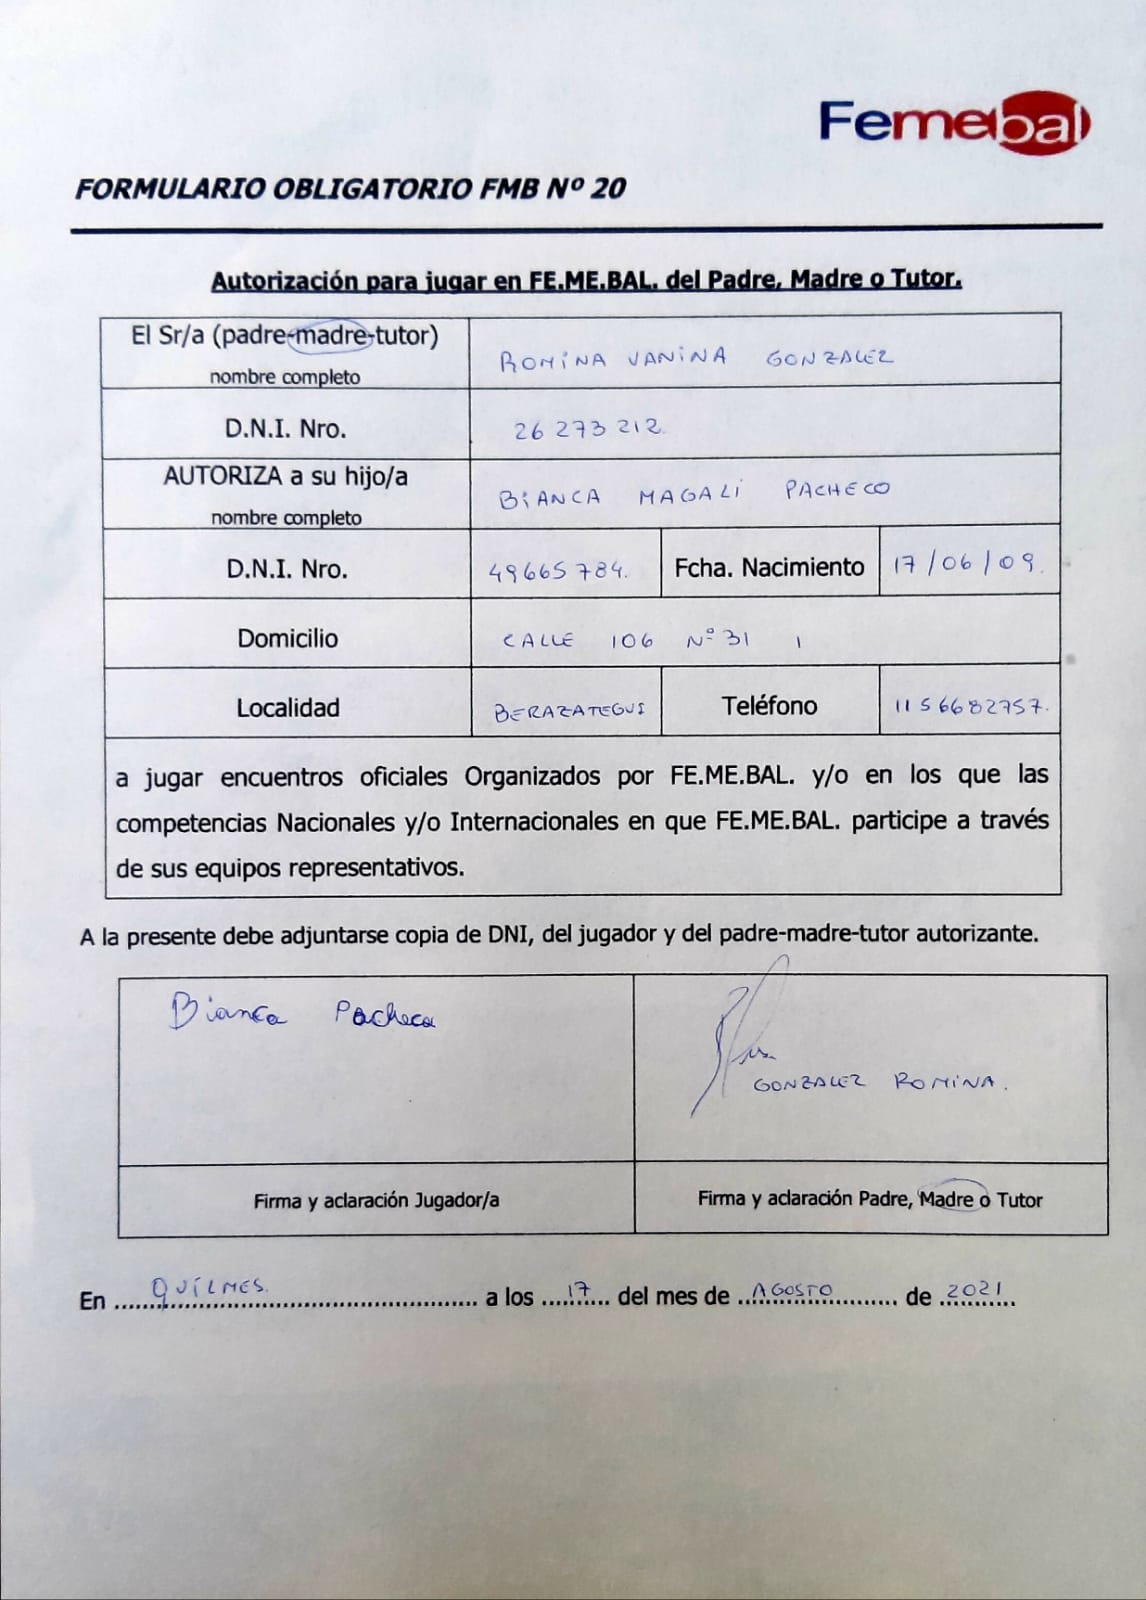 Femebal
FORMULARIO OBLIGATORIO FMB Nº 20
Autorización para jugar en FE.ME.BAL. del Padre, Madre o Tutor.
El Sr/a (padre-madre-tutor)
nombre completo
ROMINA VANINA GONZALEZ
D.N.I. Nro.
26 273 212.
AUTORIZA a su hijo/a
nombre completo
BIANCA MAGALI PACHECO
D.N.I. Nro.
49665784.
Fcha. Nacimiento
17/06/09.
Domicilio
CALLE 106 Nº 31 1
Localidad
BERAZATEGUI
Teléfono
1156682757.
a jugar encuentros oficiales Organizados por FE.ME.BAL. y/o en los que las
competencias Nacionales y/o Internacionales en que FE.ME.BAL. participe a través
de sus equipos representativos.
A la presente debe adjuntarse copia de DNI, del jugador y del padre-madre-tutor autorizante.
Bianca Pacheco
GONZALEZ ROMINA.
Firma y aclaración Jugador/a
Firma y aclaración Padre, Madre o Tutor
En QUILMES. a los 17 del mes de AGOSTO de 2021